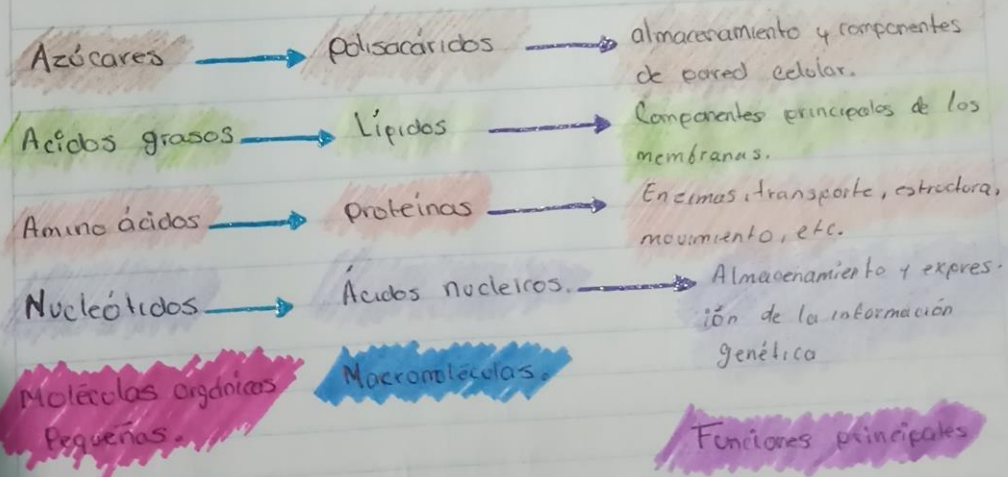 Azúcares → polisacáridos → almacenamiento y componentes
de pared celular.
Acidos grasos → Lípidos → Componentes principales de los
membranas.
Amino ácidos → proteínas → Enzimas, transporte, estructura,
movimiento, etc.
Nucleótidos → Ácidos nucleicos. → Almacenamiento y expres-
ión de la información
genética
Moléculas orgánicas
Pequeñas.
Macromoléculas.
Funciones principales